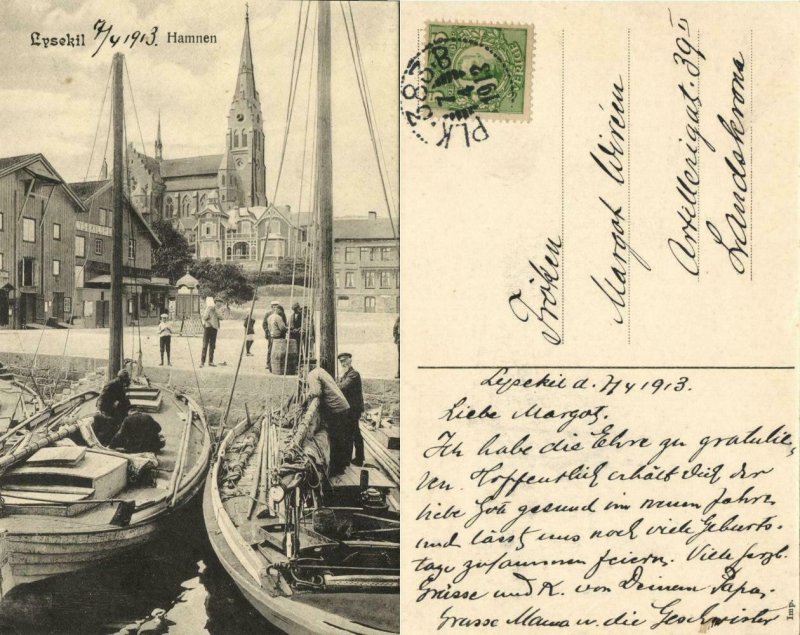 Lysekil 7/4 1913. Hamnen
PLK. 383B
7
4
1913
Fröken
Margot Wirén
Artillerigat. 39 II
Landskrona
Lysekil d. 7/4 1913.
Liebe Margot.
Ich habe die Ehre zu gratulie,
ren. Hoffentlich erhält Dich der
liebe Gott gesund im neuen Jahre
und lässt uns noch viele Geburts-
tage zusammen feiern. Viele herzl.
Grüsse und K. von Deinem Papa.
Grüsse Mama u. die Geschwister
Imp.